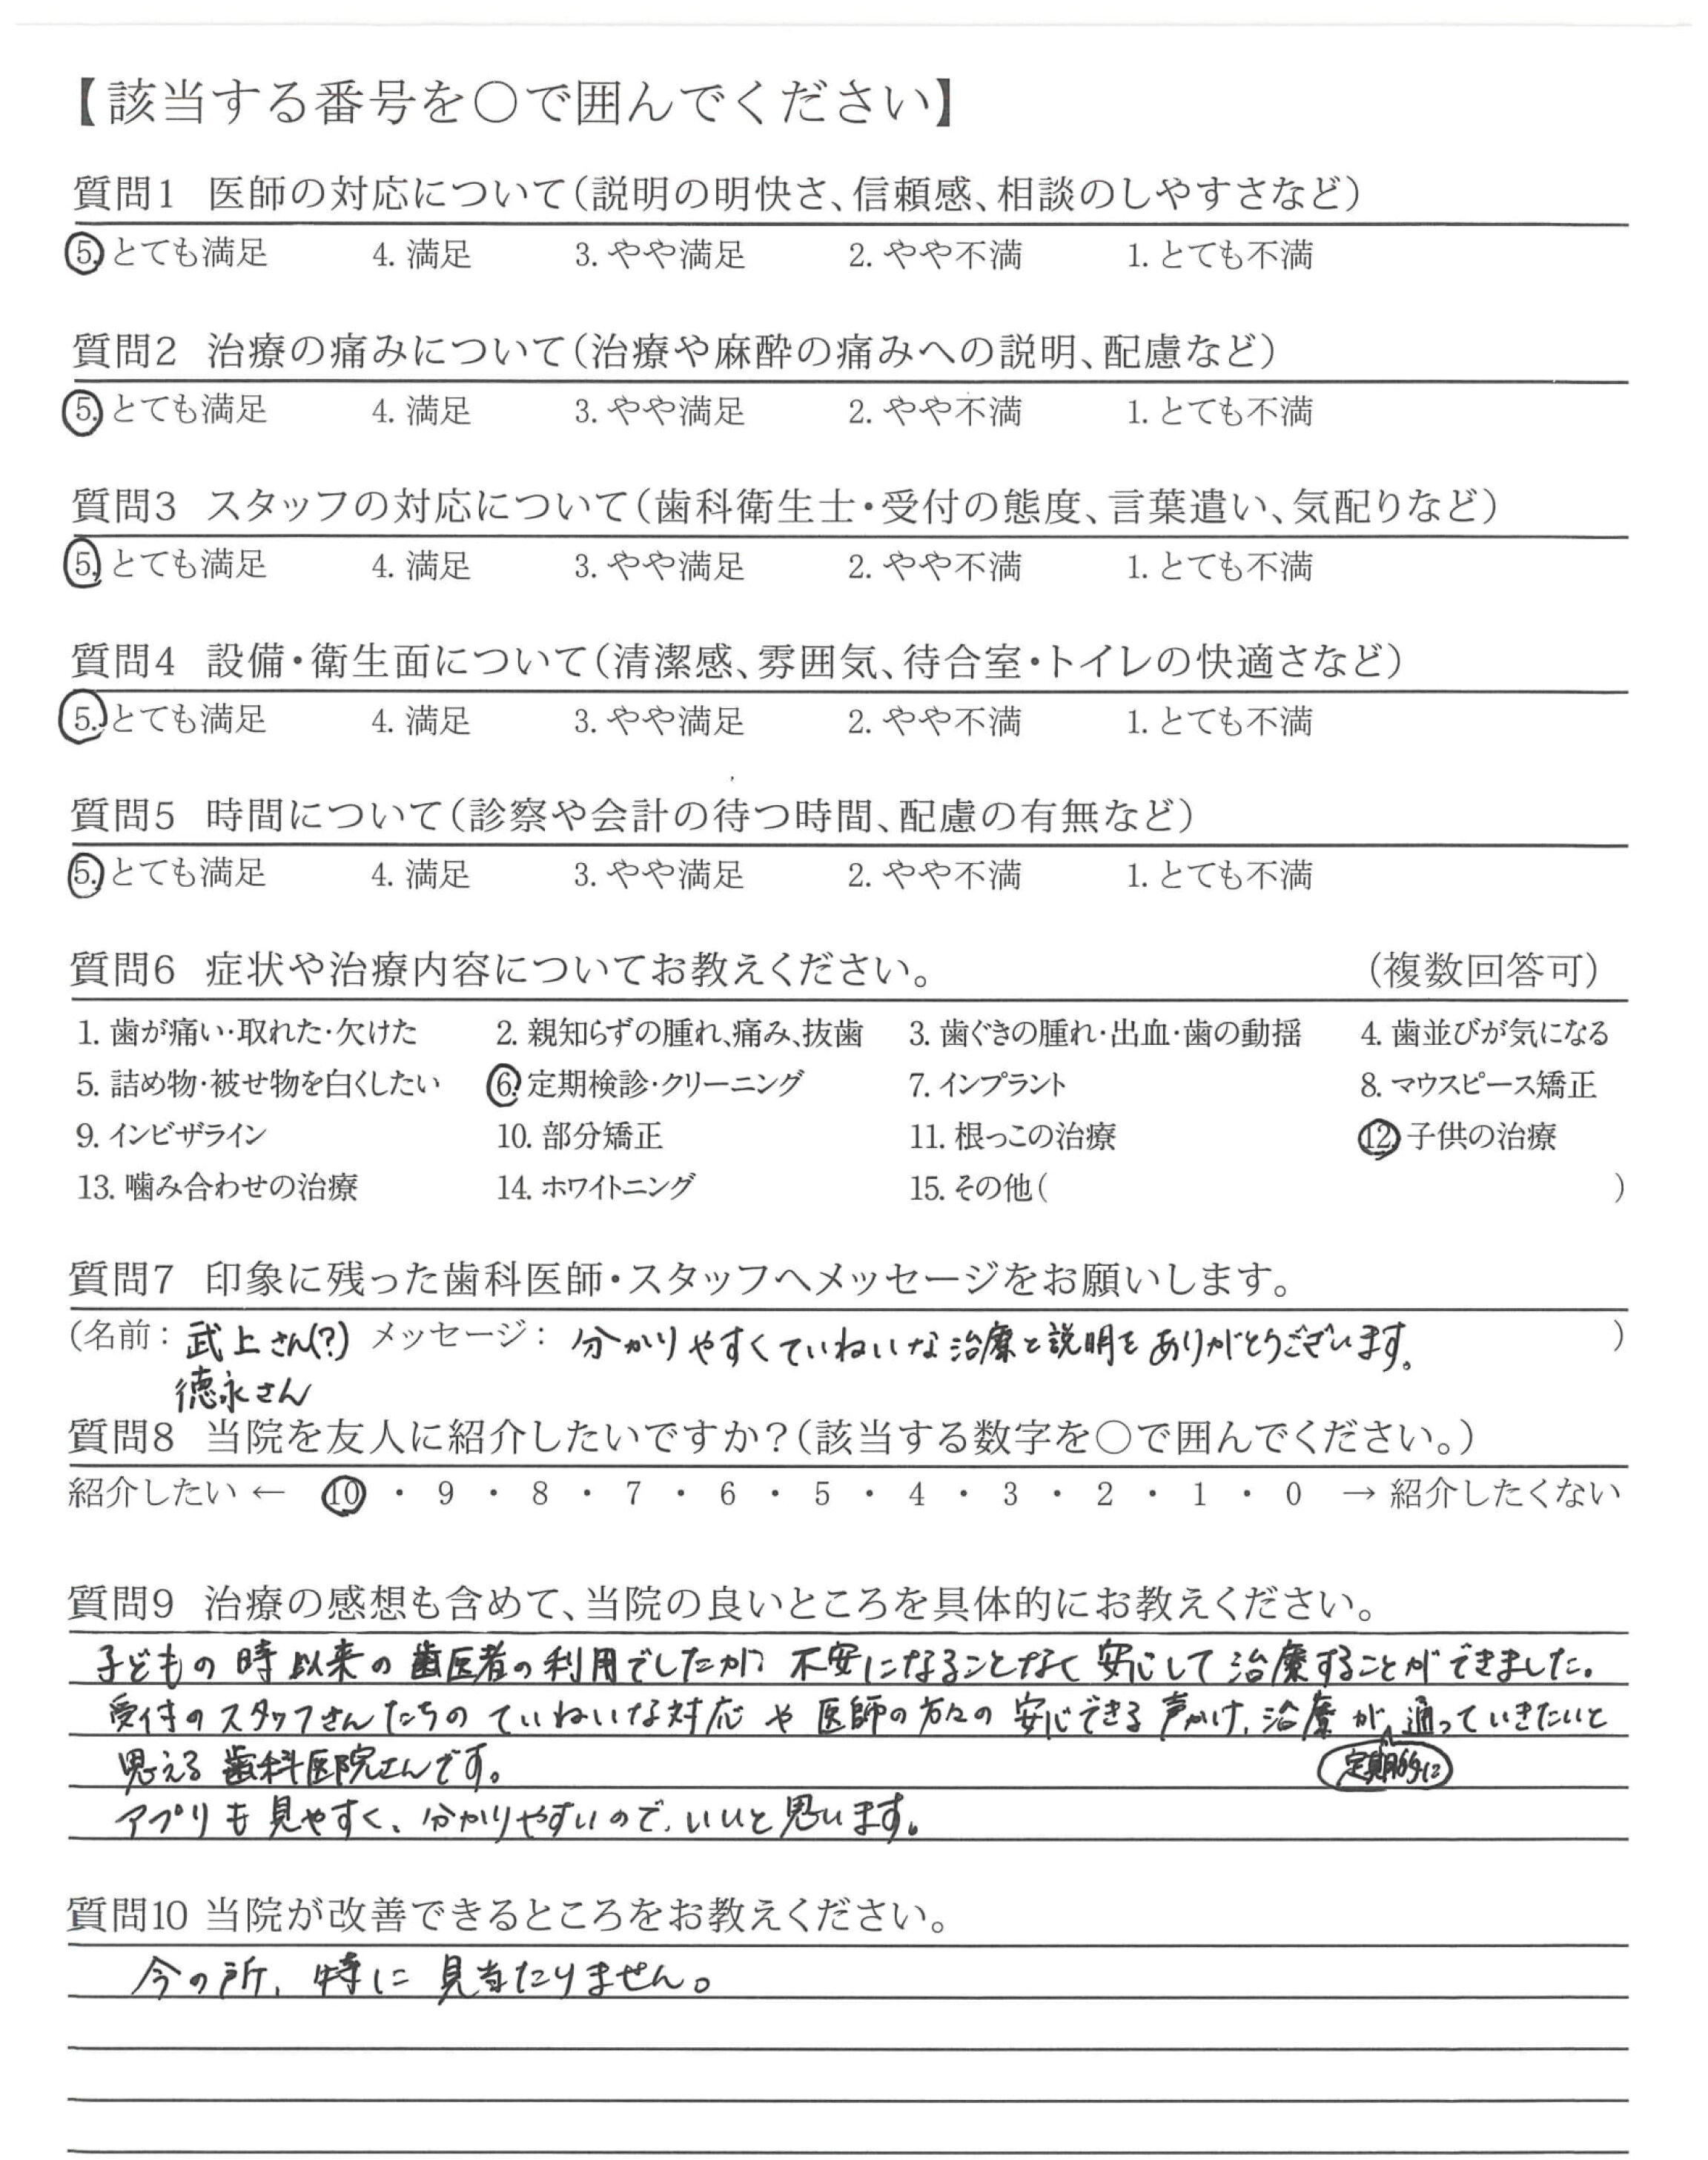 【該当する番号を〇で囲んでください】
質問1 医師の対応について(説明の明快さ、信頼感、相談のしやすさなど)
5. とても満足 4. 満足 3. やや満足 2. やや不満 1. とても不満
質問2 治療の痛みについて(治療や麻酔の痛みへの説明、配慮など)
5. とても満足 4. 満足 3. やや満足 2. やや不満 1. とても不満
質問3 スタッフの対応について(歯科衛生士・受付の態度、言葉遣い、気配りなど)
5. とても満足 4. 満足 3. やや満足 2. やや不満 1. とても不満
質問4 設備・衛生面について(清潔感、雰囲気、待合室・トイレの快適さなど)
5. とても満足 4. 満足 3. やや満足 2. やや不満 1. とても不満
質問5 時間について(診察や会計の待つ時間、配慮の有無など)
5. とても満足 4. 満足 3. やや満足 2. やや不満 1. とても不満
質問6 症状や治療内容についてお教えください。 (複数回答可)
1. 歯が痛い・取れた・欠けた 2. 親知らずの腫れ、痛み、抜歯 3. 歯ぐきの腫れ・出血・歯の動揺 4. 歯並びが気になる
5. 詰め物・被せ物を白くしたい 6. 定期検診・クリーニング 7. インプラント 8. マウスピース矯正
9. インビザライン 10. 部分矯正 11. 根っこの治療 12. 子供の治療
13. 噛み合わせの治療 14. ホワイトニング 15. その他( )
質問7 印象に残った歯科医師・スタッフへメッセージをお願いします。
(名前: 武上さん(?) メッセージ: 分かりやすくていねいな治療と説明をありがとうございます。 )
徳永さん
質問8 当院を友人に紹介したいですか?(該当する数字を〇で囲んでください。)
紹介したい ← 10 ・ 9 ・ 8 ・ 7 ・ 6 ・ 5 ・ 4 ・ 3 ・ 2 ・ 1 ・ 0 → 紹介したくない
質問9 治療の感想も含めて、当院の良いところを具体的にお教えください。
子どもの時以来の歯医者の利用でしたが、不安になることなく安心して治療することができました。
受付のスタッフさんたちのていねいな対応や医師の方々の安心できる声かけ、治療が通っていきたいと
定期的に
思える歯科医院さんです。
アプリも見やすく、分かりやすいので、いいと思います。
質問10 当院が改善できるところをお教えください。
今の所、特に見当たりません。